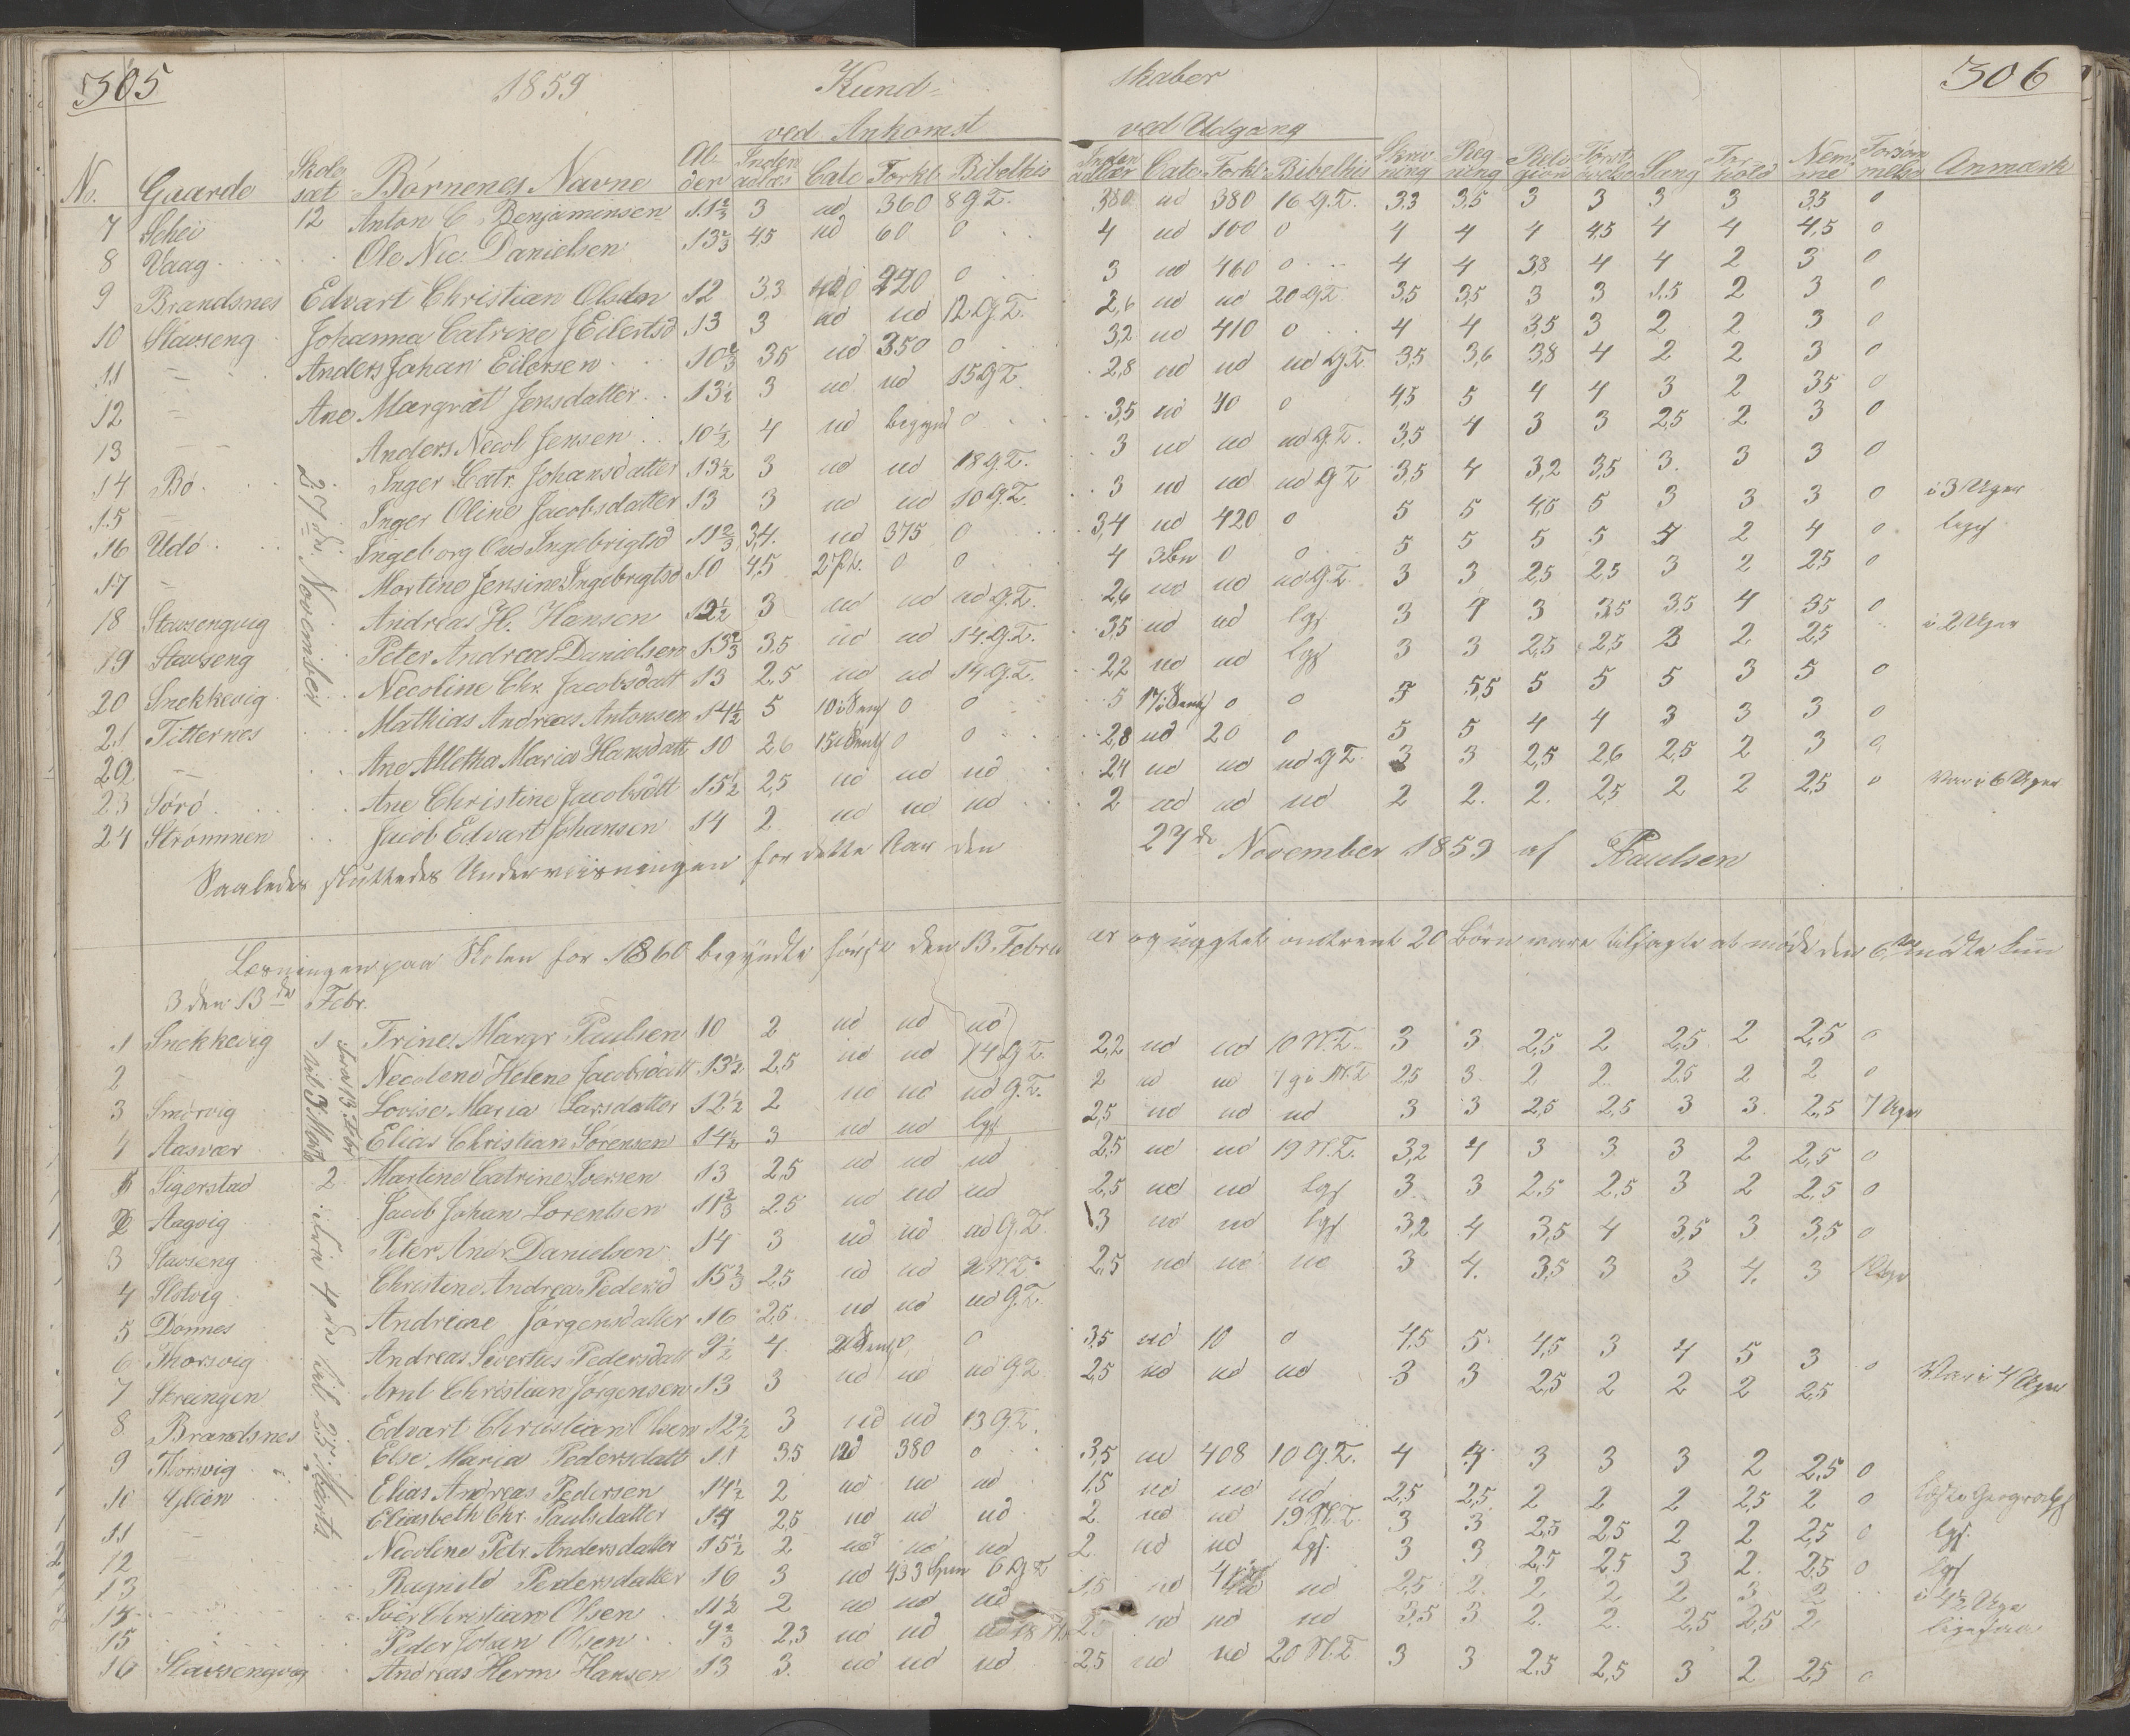 305 1859 Kund= skaber 306
ved Ankomst ved Udgang
No. Gaarde Skole sæt Börnenes Navne Al- der Inden adlæs Cate Forkl. Bibelhis Inden adlær Cate Forkl. Bibelhis Skriv- ning Reg ning Reli- gion Forst- Sang For- hold Nem- me Forsøm melse Anmærk
7 Schei 12 Anton C. Benjaminsen 11 2/3 3 ud 360 8 G.T. 380 ud 380 16 G.T. 3,3 3,5 3 3 3 3 3,5 0
8 Vaag Ole Nic. Danielsen 13 2/3 4,5 ud 60 0 4 ud 100 0 4 4 4 4,5 4 4 4,5 0
9 Brandsnes Edvart Christian Olsen 12 3,3 ud 220 0 3 ud 460 0 4 4 3,8 4 4 2 3 0
10 Stavseng Johanna Catrine J Eilertsd 13 3 ud ud 12 G.T. 2,6 ud ud 20 G.T. 3,5 3,5 3 3 1,5 2 3 0
11 — Anders Johan Eilersen 10 2/3 3,5 ud 350 0 3,2 ud 410 0 4 4 3,5 3 2 2 3 0
12 — Ane Margrat Jensdatter 13 1/2 3 ud ud 15 G.T. 2,8 ud ud ud G.T. 3,5 3,6 3,8 4 2 2 3 0
13 — Anders Necol Jensen 10 1/2 4 ud begynd 0 3,5 ud 40 0 4,5 5 4 4 3 2 3,5 0
14 Bö Inger Catr. Johansdatter 13 1/2 3 ud ud 18 G.T. 3 ud ud ud G.T. 3,5 4 3 3 2,5 2 3 0
15 — Inger Oline Jacobsdatter 13 3 ud ud 10 G.T. 3 ud ud ud G.T. 3,5 4 3,2 3,5 3 3 3 0
16 Udö Ingeborg Ove Ingebrigtsd 11 2/3 3,4 ud 375 0 3,4 ud 420 0 5 5 4,6 5 3 3 3 0 i 3 Uger
17 — Martine Jensine Ingebrigtsd 10 4,5 0 0 4 0 0 5 5 5 5 4 2 4 0
18 Stavsengvig Andreas H. Hansen 12 1/2 3 ud ud ud G.T. 2,6 ud ud ud G.T. 3 3 2,5 2,5 3 2 2,5 0
19 Stavseng Peter Andreas Danielsen 13 2/3 3,5 ud ud 14 G.T. 3,5 ud ud 3 4 3 3,5 3,5 4 3,5 0 i 2 Uger
20 Snekkevig Necoline Chr. Jacobsdatt 13 2,5 ud ud 14 G.T. 2,2 ud ud 3 3 2,5 2,5 3 2 2,5
21 Titternes Mathias Andreas Antonsen 14 1/2 5 0 0 5 0 0 5 5,5 5 5 5 3 5 0
22 — Ane Alletha Maria Hansdatt 10 2,6 0 0 2,8 ud 20 0 5 5 4 4 3 3 3 0
23 Sörö Ane Christine Jacobsdtt 15 1/2 2,5 ud ud ud 2,4 ud ud ud G.T. 3 3 2,5 2,6 2,5 2 3 0
24 Strömmen Jacob Edvart Johansen 14 2 ud ud ud 2 ud ud ud 2 2 2 2,5 2 2 2,5 0 Var i 6 Uger
27de November
Saaledes sluttedes Underviisningen for dette Aar den 27de November 1859 af Paulsen
Læsningen paa Skolen for 1860 begyndte först den 13. Februar og omtrent 20 Börn vare tilsagte at möde den 6te mödte kun
3 den 13de Febr.
1 Snekkevig 1 Trine Margr Paulsen 10 2 ud ud ud 2,2 ud ud 10 N.T. 3 3 2,5 2 2,5 2 2,5 0
2 — Necolene Helene Jacobsdatt 13 1/2 2,5 ud ud 14 G.T. 2 ud ud 7 N.T. 2,5 3 2 2 2,5 2 2 0
3 Smörvig Lovise Maria Larsdatter 12 1/2 2 ud ud ud G.T. 2,5 ud ud ud 3 3 2,5 2,5 3 3 2,5
4 Aasvær Elias Christian Sörensen 14 1/2 3 ud ud 2,5 ud ud 19 N.T. 3,2 4 3 3 3 2 2,5 0
fra 13 Febr til 3 Marts
1 Sigerstad 2 Martine Catrine Iversen 13 2,5 ud ud ud 2,5 ud ud 3 3 2,5 2,5 3 2 2,5 0
2 Aagvig Jacob Johan Lorentsen 11 2/3 2,5 ud ud ud 3 ud ud 3,2 4 3,5 4 3,5 3 3,5 0
3 Stavseng Peter Andr. Danielsen 14 3 ud ud ud G.T. 2,5 ud ud ud 3 4 3,5 3 3 4 3
4 Slotvig Christine Andrea Pedersd 15 2/3 2,5 ud ud
5 Donnes Andreane Jörgensdatter 16 2,5 ud ud ud G.T.
6 Thorsvig Andreas Sivertus Pedersdatt 9 1/2 4 0 0 3,5 ud 10 0 4,5 5 4,5 3 4 5 3 0
7 Strengen Arnt Christian Jörgensen 13 3 ud ud ud G.T. 2,5 ud ud ud 3 3 2,5 2 2 2 2,5 Var i 4 Uger
8 Brandsnes Edvart Christian Olsen 12 1/2 3 ud ud 13 G.T.
9 Thorsvig Else Maria Pedersdatt 11 3,5 ud 380 0 3,5 ud 408 10 G.T. 4 4 3 3 3 2 2,5 0
10 Glein Elias Andreas Pedersen 14 1/2 2 ud ud ud 1,5 ud ud ud 2,5 2,5 2 2 2 2,5 2 0
11 — Eliasbeth Chr. Paulsdatter 14 2,5 ud ud ud 2 ud ud 19 N.T. 3 3 2,5 2,5 2 2 2,5 0
12 Necoline Petr. Andersdatter 15 1/2 2 ud ud ud 2 ud ud 3 3 2,5 2,5 3 2 2,5 0
13 Ragnild Pedersdatter 16 3 ud 433 6 G.T. 1,5 ud ud 2,5 2 2 2 2 3 2
14 Iver Christian Olsen 11 1/2 2 ud ud ud ud ud ud 3,5 3 2 2 2,5 2,5 2
15 Peder Johan Olsen 9 2/3 2,3 ud ud
16 Stavsengvag Andreas Herm Hansen 13 3 ud ud ud 2,5 ud ud 20 N.T. 3 3 2,5 2,5 3 2 2,5 0
fra 4de til 23 Marts